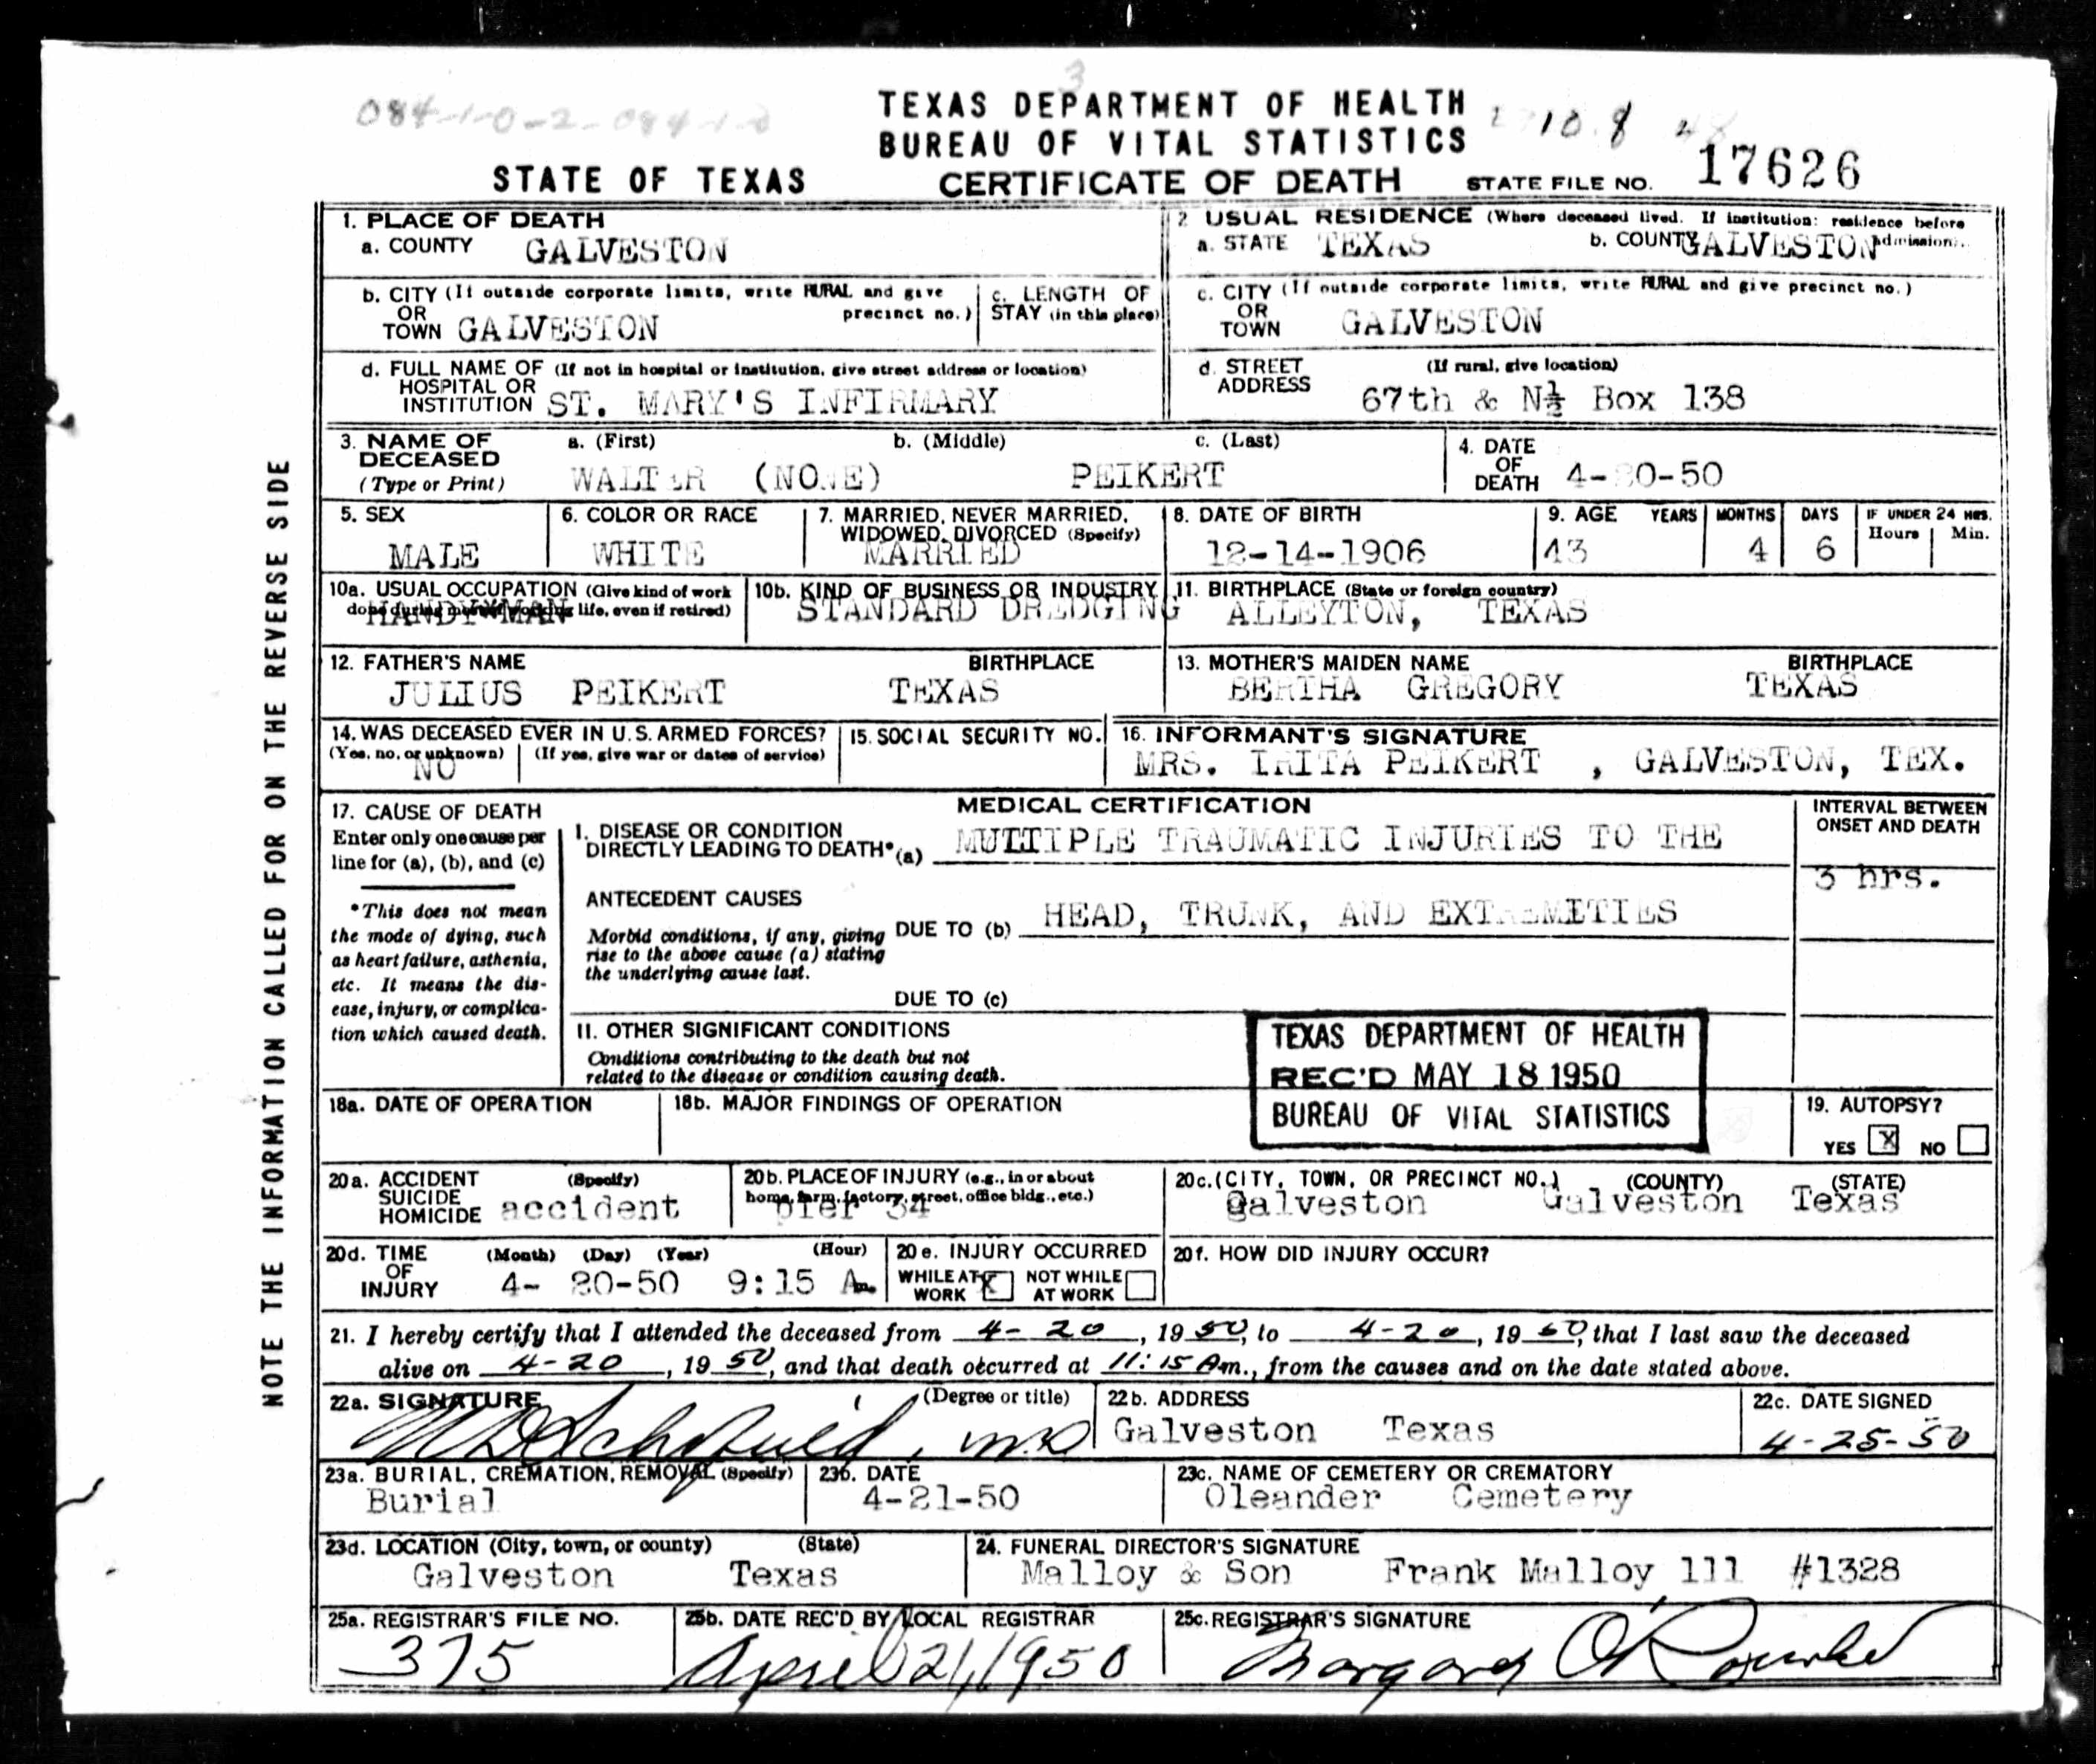 TEXAS DEPARTMENT OF HEALTH
BUREAU OF VITAL STATISTICS
STATE OF TEXAS CERTIFICATE OF DEATH STATE FILE NO. 17626
NOTE THE INFORMATION CALLED FOR ON THE REVERSE SIDE
1. PLACE OF DEATH
a. COUNTY GALVESTON
2 USUAL RESIDENCE (Where deceased lived. If institution: residence before admission).
a. STATE TEXAS b. COUNTY GALVESTON
b. CITY (If outside corporate limits, write RURAL and give precinct no.)
OR
TOWN GALVESTON
c. LENGTH OF
STAY (in this place)
c. CITY (If outside corporate limits, write RURAL and give precinct no.)
OR
TOWN GALVESTON
d. FULL NAME OF (If not in hospital or institution, give street address or location)
HOSPITAL OR
INSTITUTION ST. MARY'S INFIRMARY
d. STREET (If rural, give location)
ADDRESS 67th & N½ Box 138
3. NAME OF a. (First) b. (Middle) c. (Last)
DECEASED
(Type or Print) WALTER (NONE) PEIKERT
4. DATE
OF
DEATH 4-20-50
5. SEX
MALE
6. COLOR OR RACE
WHITE
7. MARRIED, NEVER MARRIED,
WIDOWED, DIVORCED (Specify)
MARRIED
8. DATE OF BIRTH
12-14-1906
9. AGE YEARS MONTHS DAYS IF UNDER 24 HRS.
Hours Min.
43 4 6
10a. USUAL OCCUPATION (Give kind of work
done during most of working life, even if retired)
HANDYMAN
10b. KIND OF BUSINESS OR INDUSTRY
STANDARD DREDGING
11. BIRTHPLACE (State or foreign country)
ALLEYTON, TEXAS
12. FATHER'S NAME BIRTHPLACE
JULIUS PEIKERT TEXAS
13. MOTHER'S MAIDEN NAME BIRTHPLACE
BERTHA GREGORY TEXAS
14. WAS DECEASED EVER IN U.S. ARMED FORCES?
(Yes, no, or unknown) (If yes, give war or dates of service)
NO
15. SOCIAL SECURITY NO.
16. INFORMANT'S SIGNATURE
MRS. IRITA PEIKERT , GALVESTON, TEX.
17. CAUSE OF DEATH
Enter only one cause per
line for (a), (b), and (c)
*This does not mean
the mode of dying, such
as heart failure, asthenia,
etc. It means the dis-
ease, injury, or complica-
tion which caused death.
MEDICAL CERTIFICATION
I. DISEASE OR CONDITION
DIRECTLY LEADING TO DEATH*(a) MULTIPLE TRAUMATIC INJURIES TO THE
ANTECEDENT CAUSES
Morbid conditions, if any, giving
rise to the above cause (a) stating
the underlying cause last.
DUE TO (b) HEAD, TRUNK, AND EXTREMITIES
DUE TO (c)
INTERVAL BETWEEN
ONSET AND DEATH
3 hrs.
II. OTHER SIGNIFICANT CONDITIONS
Conditions contributing to the death but not
related to the disease or condition causing death.
TEXAS DEPARTMENT OF HEALTH
REC'D MAY 18 1950
BUREAU OF VITAL STATISTICS
18a. DATE OF OPERATION
18b. MAJOR FINDINGS OF OPERATION
19. AUTOPSY?
YES X NO
20a. ACCIDENT (Specify)
SUICIDE
HOMICIDE accident
20b. PLACE OF INJURY (e.g., in or about
home, farm, factory, street, office bldg., etc.)
pier 34
20c. (CITY, TOWN, OR PRECINCT NO.) (COUNTY) (STATE)
Galveston Galveston Texas
20d. TIME (Month) (Day) (Year) (Hour)
OF
INJURY 4- 20-50 9:15 Am.
20e. INJURY OCCURRED
WHILE AT WORK X NOT WHILE AT WORK
20f. HOW DID INJURY OCCUR?
21. I hereby certify that I attended the deceased from 4-20, 1950, to 4-20, 1950, that I last saw the deceased
alive on 4-20, 1950, and that death occurred at 11:15 Am., from the causes and on the date stated above.
22a. SIGNATURE (Degree or title)
M.D.
22b. ADDRESS
Galveston Texas
22c. DATE SIGNED
4-25-50
23a. BURIAL, CREMATION, REMOVAL (Specify)
Burial
23b. DATE
4-21-50
23c. NAME OF CEMETERY OR CREMATORY
Oleander Cemetery
23d. LOCATION (City, town, or county) (State)
Galveston Texas
24. FUNERAL DIRECTOR'S SIGNATURE
Malloy & Son Frank Malloy 111 #1328
25a. REGISTRAR'S FILE NO.
375
25b. DATE REC'D BY LOCAL REGISTRAR
April 21, 1950
25c. REGISTRAR'S SIGNATURE
Margaret O'Rourke